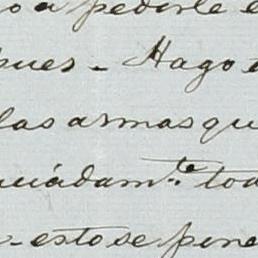 o a pederle e
pues - Hago
las armas qu
uiádam.te tod
- esto se pone